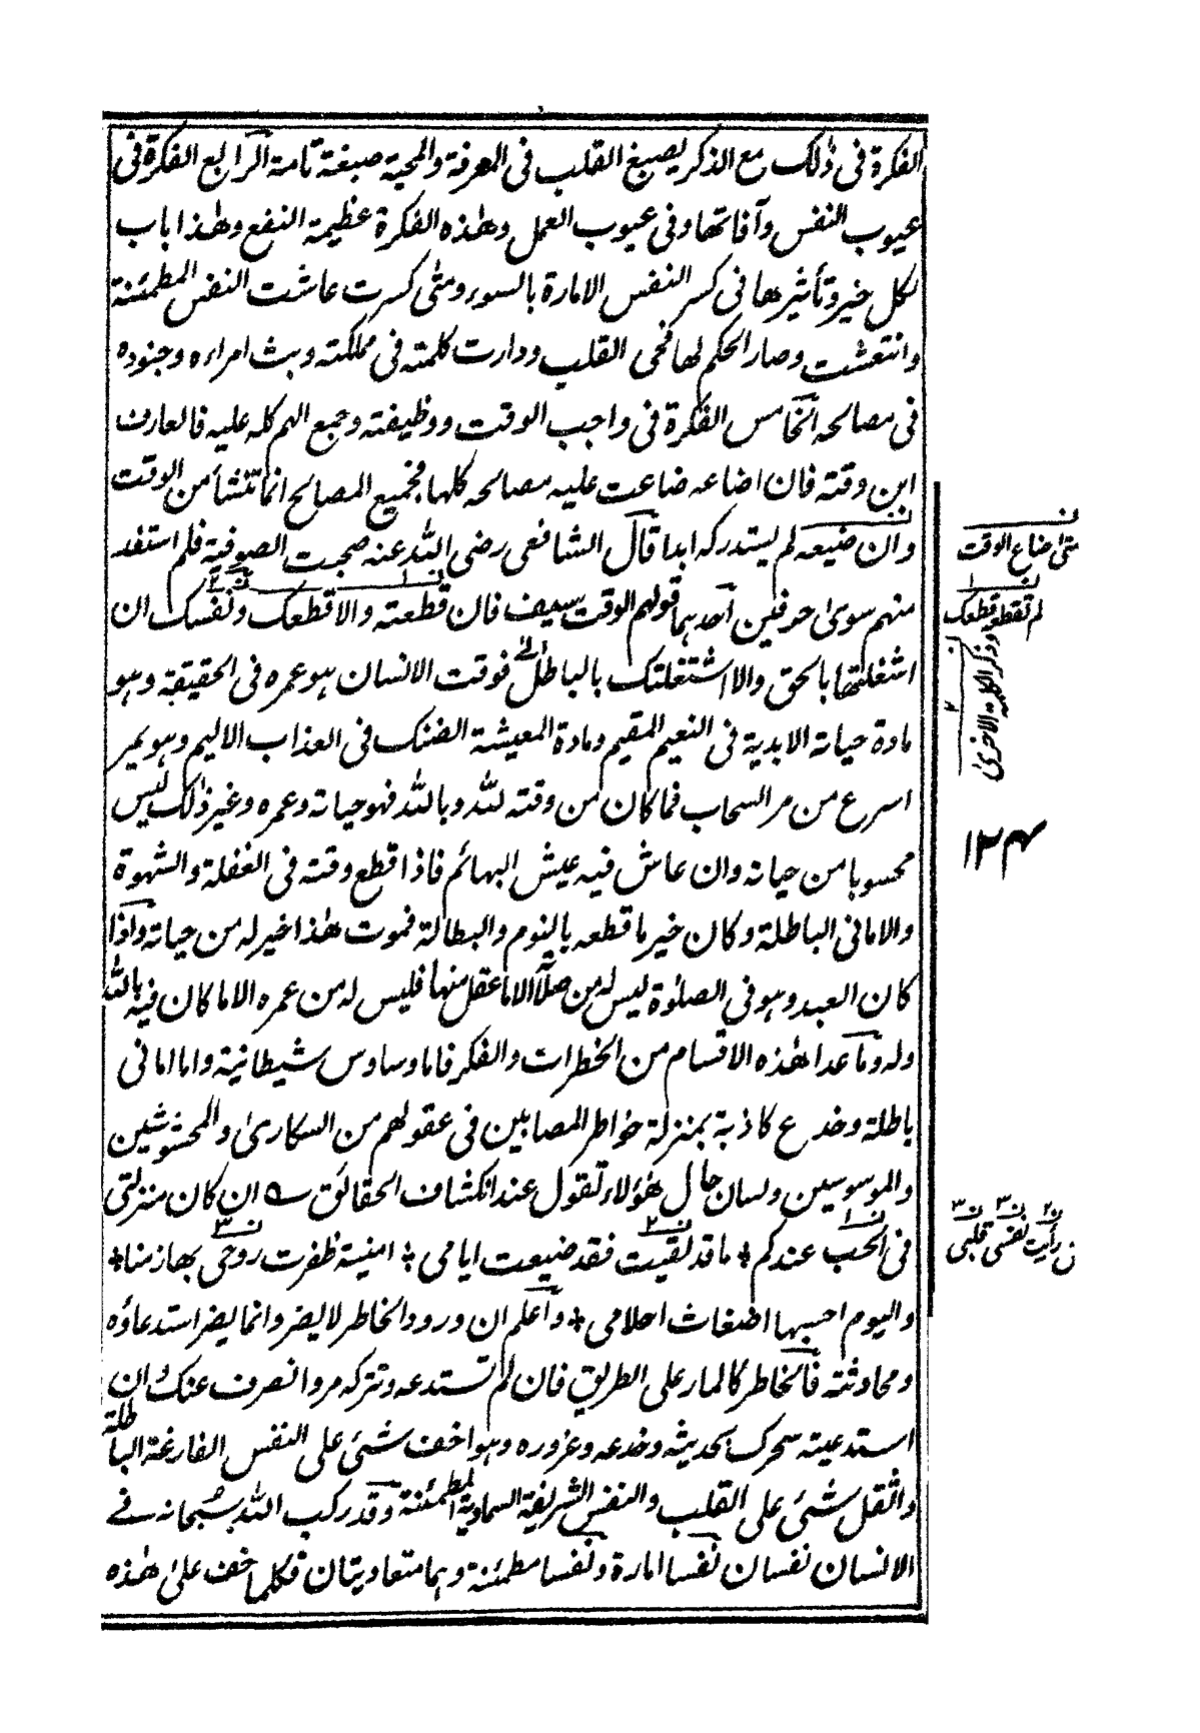 الفكرة فى ذلك مع الذكر يصبغ القلب فى المعرفة والمحبة صبغة تامة الرابع الفكرة فى
عيوب النفس وآفاتها وفى عيوب العمل وهذه الفكرة عظيمة النفع وهذا باب
لكل خير وتأثيرها فى كسر النفس الامارة بالسوء ومتى كسرت عاشت النفس المطمئنة
وانتعشت وصار الحكم لها فحى القلب ودارت كلمته فى مملكته وبث امراءه وجنوده
فى مصالحه الخامس الفكرة فى واجب الوقت ووظيفته وجمع الهم كله عليه فالعارف
ابن وقته فان اضاعه ضاعت عليه مصالحه كلها فجميع المصالح انما تنشأ من الوقت
وان ضيعه لم يستدركه ابدا قال الشافعى رضى الله عنه صحبت الصوفية فلم استفد
منهم سوى حرفين احدهما قولهم الوقت سيف فان قطعته والا قطعك ونفسك ان
اشغلتها بالحق والا اشتغلتك بالباطل فوقت الانسان هو عمره فى الحقيقة وهو
مادة حياته الابدية فى النعيم المقيم ومادة المعيشة الضنك فى العذاب الاليم وهو يمر
اسرع من مر السحاب فما كان من وقته لله وبالله فهو حياته وعمره وغير ذلك ليس
محسوبا من حياته وان عاش فيه عيش البهائم فاذا قطع وقته فى الغفلة والشهوة
والامانى الباطلة وكان خير ما قطعه بالنوم والبطالة فموت هذا خير له من حياته واذا
كان العبد وهو فى الصلوة ليس له من صلاته الا ما عقل منها فليس له من عمره الا ما كان فيه بالله
وله وما عدا هذه الاقسام من الخطرات والفكر فاما وساوس شيطانية واما امانى
باطلة وخدع كاذبة بمنزلة خواطر المصابين فى عقولهم من السكارى والمحشوشين
والموسوسين ولسان حال هؤلاء تقول عند انكشاف الحقائق ان كان منزلتى
فى الحب عندكم * ما قد لقيت فقد ضيعت ايامى * امنية ظفرت روحى بها زمنا *
واليوم احسبها اضغاث احلامى * واعلم ان ورود الخاطر لا يضر وانما يضر استدعاؤه
ومحادثته فالخاطر كالمار على الطريق فان لم تستدعه وتتركه مر وانصرف عنك وان
استدعيته سحرك بحديثه وخدعه وغروره وهو اخف شئى على النفس الفارغة الباطلة
واثقل شئى على القلب والنفس الشريفة السماوية المطمئنة وقد ركب الله سبحانه فى
الانسان نفسان نفسا امارة ونفسا مطمئنة وهما متعاديتان فكلما خف على هذه
ن
متى اضاع الوقت
ن١
لم تقطعه قطعك
ن٢
وذكر الكلمة الاخرى
١٢ منه
ن رأيت نفسى قلبى